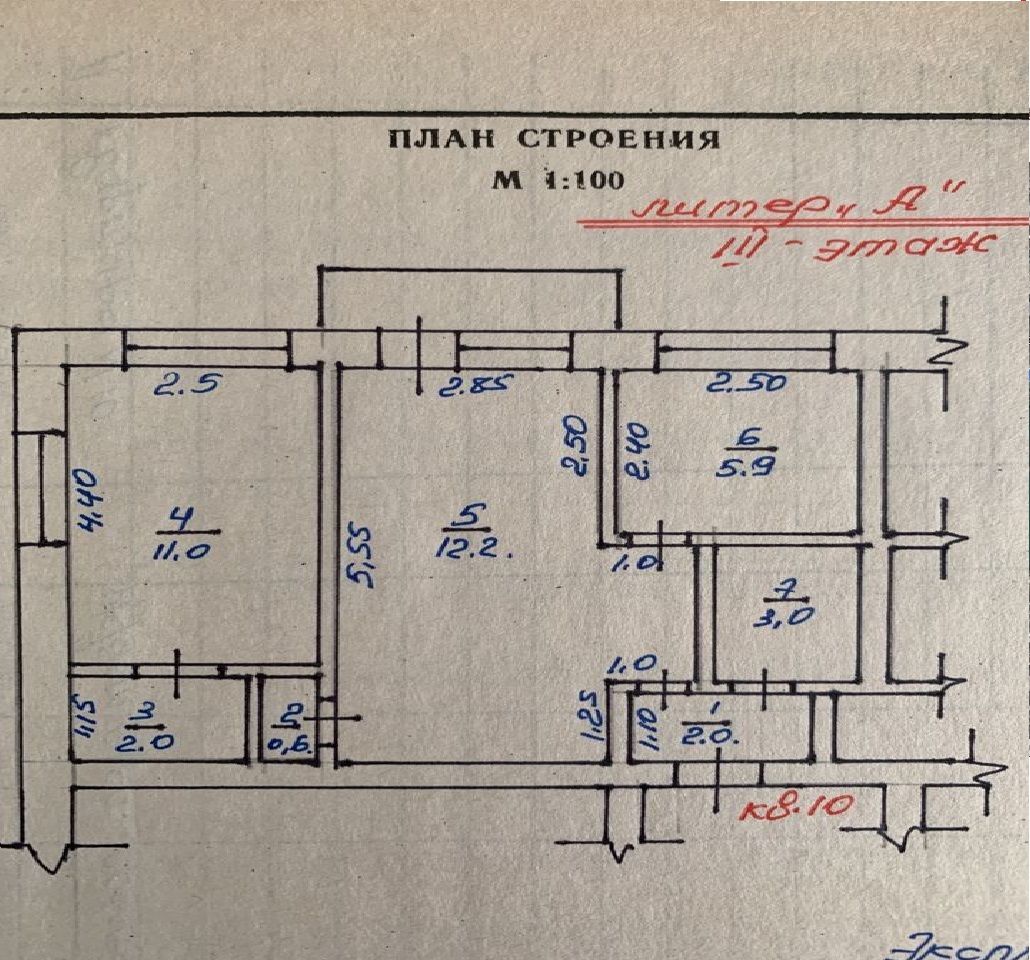 ПЛАН СТРОЕНИЯ
М 1:100
литер „А"
III - этаж
2.5
2.85
2.50
4,40
4
11.0
5,55
5
12.2.
2.50
2.40
6
5.9
1.0
7
3,0
1.0
1,15
3
2.0
2
0,6.
1.25
1.10
1
2.0.
кв.10